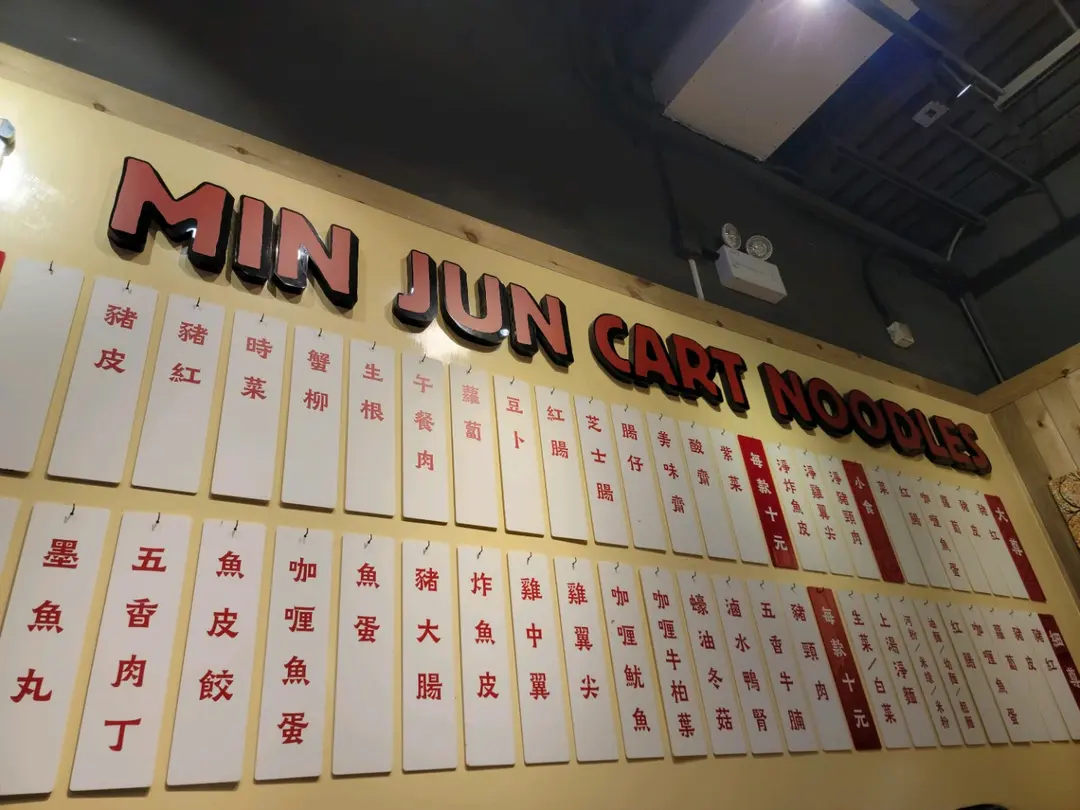 MIN JUN CART NOODLES
豬皮
豬紅
時菜
蟹柳
生根
午餐肉
蘿蔔
豆卜
紅腸
芝士腸
腸仔
美味齋
酸齋
紫菜
每款十元
淨炸魚皮
淨雞翼尖
淨豬頸肉
小食
紅腸
咖喱魚蛋
豬皮
豬紅
墨魚丸
五香肉丁
魚皮餃
咖喱魚蛋
魚蛋
豬大腸
炸魚皮
雞中翼
雞翼尖
咖喱魷魚
咖喱牛柏葉
蠔油冬菇
滷水鴨腎
五香牛腩
豬頸肉
每款十元
生菜/白菜
上湯淨麵
紅腸
蘿蔔
豬皮
豬紅